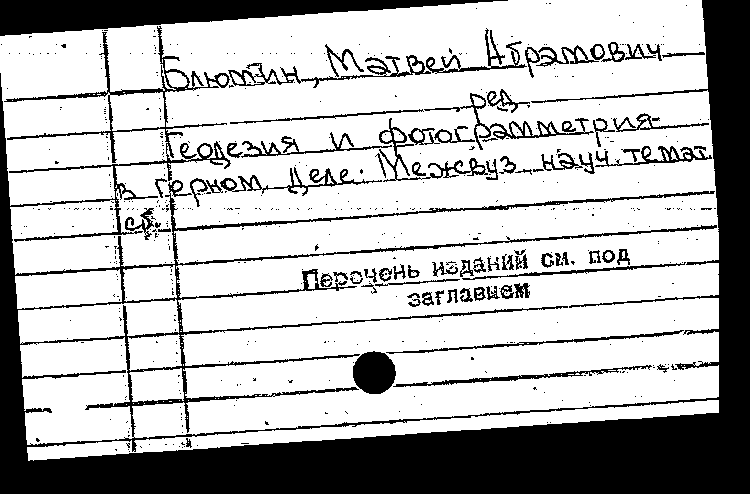 Блютин, Матвей Абрамович
ред.
Геодезия и фотограмметрия
в горном деле: Межвуз. науч. темат.
сб.
Перечень изданий см. под
заглавием